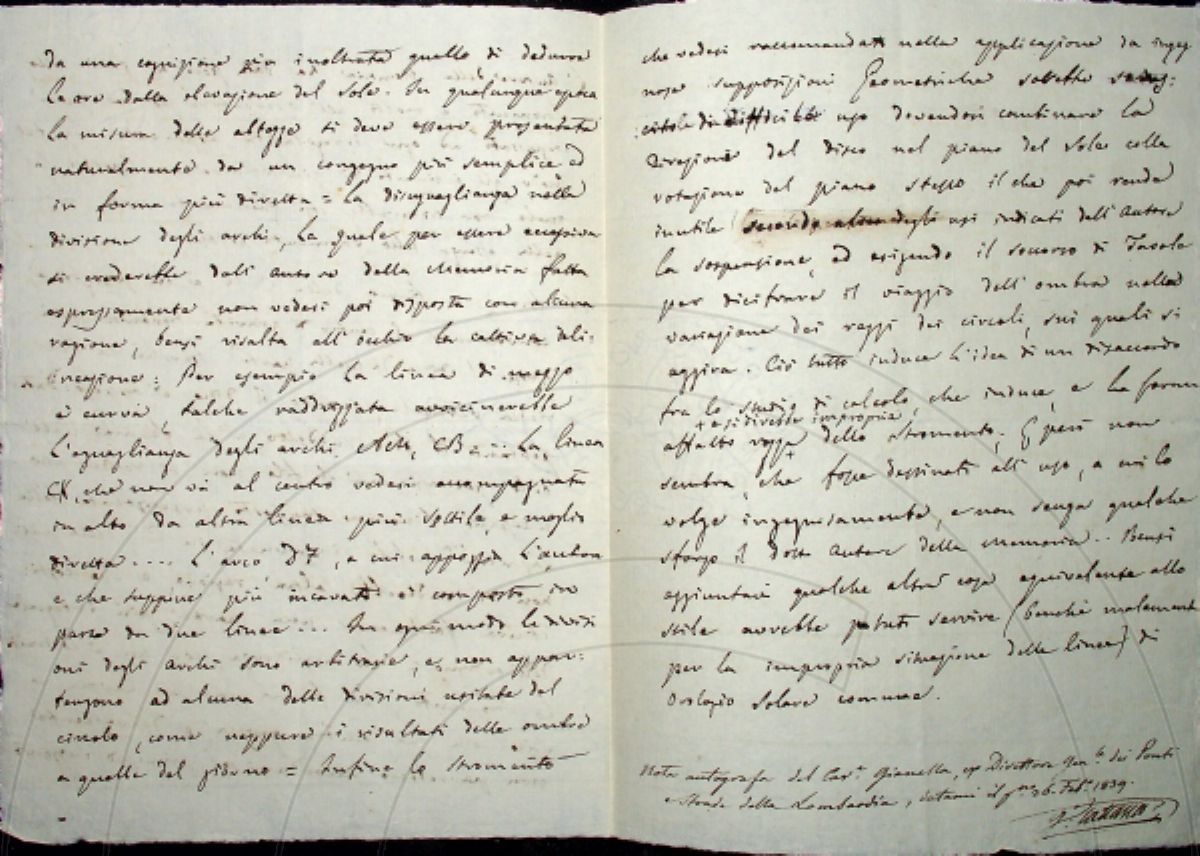 da una cognizione più inoltrata quello di dedurre
le ore dalla elevazione del Sole. In qualunque epoca
la misura delle altezze si deve essere presentata
naturalmente da un congegno più semplice ed
in forma più diretta = La diseguaglianza nella
divisione degli archi, la quale per essere eccessiva
si crederebbe dall'autore della Memoria fatta
espressamente non vedesi poi disposta con alcuna
ragione, bensì risalta all'occhio la cattiva deli-
neazione: Per esempio la linea di mezzo
è curva, talchè raddrizzata avvicinerebbe
l'eguaglianza degli archi CB.... La linea
CX, che non và al centro vedesi accompagnata
in alto da altra linea più sottile, e meglio
diretta.... L'arco D7, a cui appoggia l'autore
e che suppone più incavato è composto in
parte da due linee... In ogni modo le divisi
oni degli archi sono arbitrarie, e non appar:
tengono ad alcuna delle divisioni usitate del
circolo, come neppure i risultati delle ombre
a quelle del giorno = Infine lo stromento
che vedesi raccomandato nella applicazione da ingeg
nose supposizioni Geometriche sarebbe
di difficile uso dovendosi combinare la
direzione del disco nel piano del Sole colla
rotazione del piano stesso il che poi rende
inutile secondo degli usi indicati dall'Autore
la sospensione, ed esigendo il soccorso di Tavole
per dicifrare il viaggio dell'ombra nella
variazione dei raggi dei circoli, sui quali si
aggira. Ciò tutto induce l'idea di un disaccordo
tra lo studio di calcolo, che induce, e la forma
+ e si direbbe impropria
affatto rozza + dello stromento. E però non
sembra, che fosse destinato all'uso, a cui lo
volge ingegnosamente, e non senza qualche
sforzo il dotto Autore della Memoria.. Bensì
aggiuntavi qualche altra cosa equivalente allo
stile avrebbe potuto servire (benchè malamente
per la impropria situazione delle linee) di
Orologio Solare comune.
Nota autografa del Cav.r Gianella, ex Direttore Gen.le dei Ponti
e Strade della Lombardia, datami il g.no 26. Feb.o 1839.